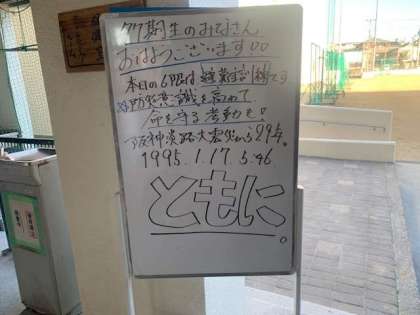 77期生のみなさん
おはようございます!!
本日の6限は避難訓練です
防災意識を高めて
命を守る行動を!
阪神淡路大震災から29年。
1995.1.17 5:46
ともに。